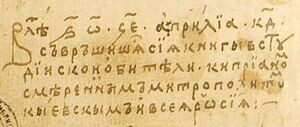 Влѣ҇ ҂ѕ҃. ѡ҃. ч҃е. априлїа. к҃д.
съвръшишѧсѧ сїѧ книгы въстꙋ
дїискои обители. кипрїано
смѣреннымъ митрополито
кыевскымъ и всеѧ рѡсїѧ :~